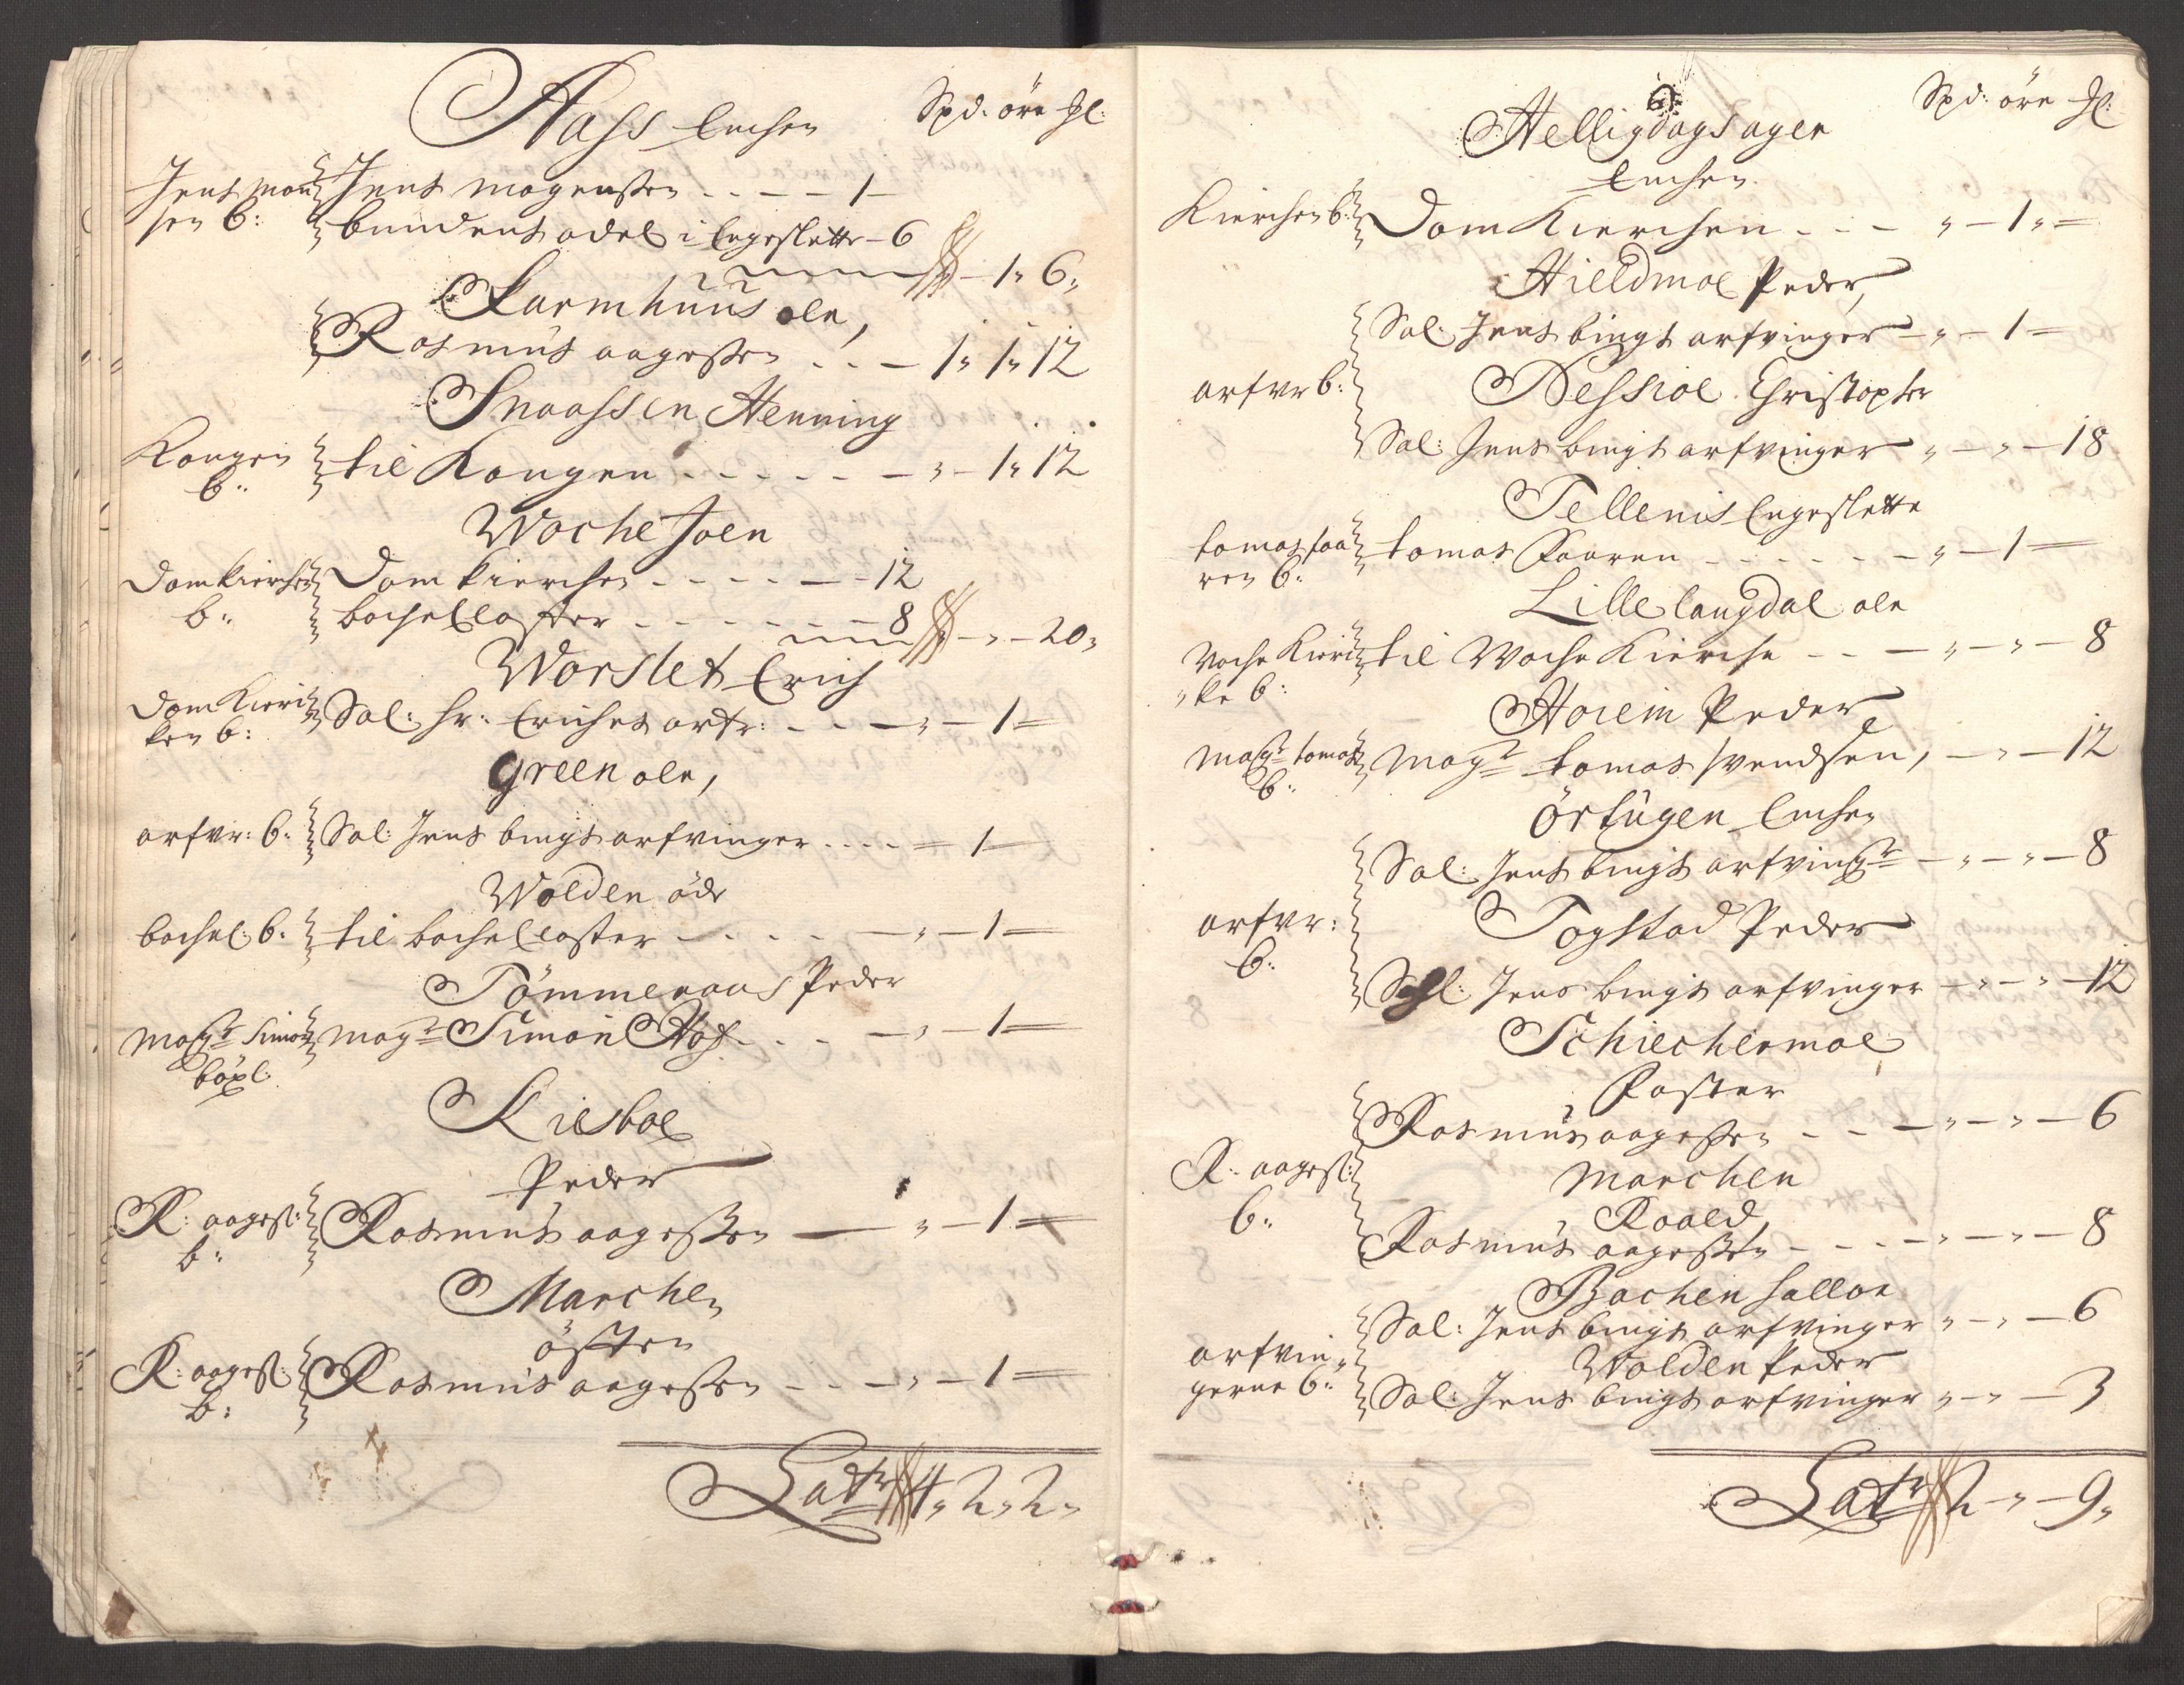 Aass Enchen Spd: öre Ɉl:
Jens Mon
sen b: Jens mogenssen - - - - 1 -
bundens odel i Engeslette - 6
- 1 " 6 "
Karmhuus ole,
Rasmus aagessen . . - 1 " 1 " 12
Snaassen Henning
Kongen
b: til Kongen - - - - - " - 1 " 12
Woche Joen
Domkierchen
b: Domkierchen - - - - - 12
bachel closter - - - - - - 8
- " - 20 "
Worslet Erich
Dom Kierc
ken b: Sal: hr: Eriches arfr: - - - " - 1 =
Green ole,
arfvr: b: Sal: Jens bings arfvinger - - - - = 1 -
Wolden öde
bachel: b: til bachel closter - - - - " - 1 -
Tömmeraas Peder
Magr Simon
böxl: Magr Simon Hof - - - - " - 1 =
Kiesboe
Peder
R: aagess:
b: Rasmus aagessen - " - 1 =
Marchen
östen
R: aagess:
b: Rasmus aagessen - - - " - 1 =
Latr 4 " 2 " 2 "
Helligdags ager Spd: öre Ɉl:
Enchen
Kierchen b: Dom Kierchen - - - " - 1 " =
Hieldmoe Peder,
Sal: Jens bings arfvinger - " - 1 =
arfvr b: Nessioe Christopher
Sal: Jens bings arfvinger " - " - 18
Tellenis Engeslette
tomas faa
ren b: tomas Faaren - - - - - - " - 1 -
Lille langdal ole
Woche Kierc
" ke b: til Woche Kierche - - - " - " - 8
Hoiem Peder
Magr tomas
b: Magr tomas svendsen, - " - 12
örtugen Enchen
Sal: Jens bings arfvingr - " - " - 8
arfvr:
b: Togstad Peder
Sahl: Jens bings arfvinger - " - " - 12
Schiechermoe
Paster
Rasmus aagessen - - - " - " - 6
R: aagess:
b: Marchen
Roald
Rasmus aagessen - - - - " - " - 8
Bachen hallor
Sal: Jens bings arfvinger " - " - 6
arfvin "
gerne b: Wolden Peder
Sal: Jens bings arfvinger " - " - 3
Latr 2 - " - 9 "